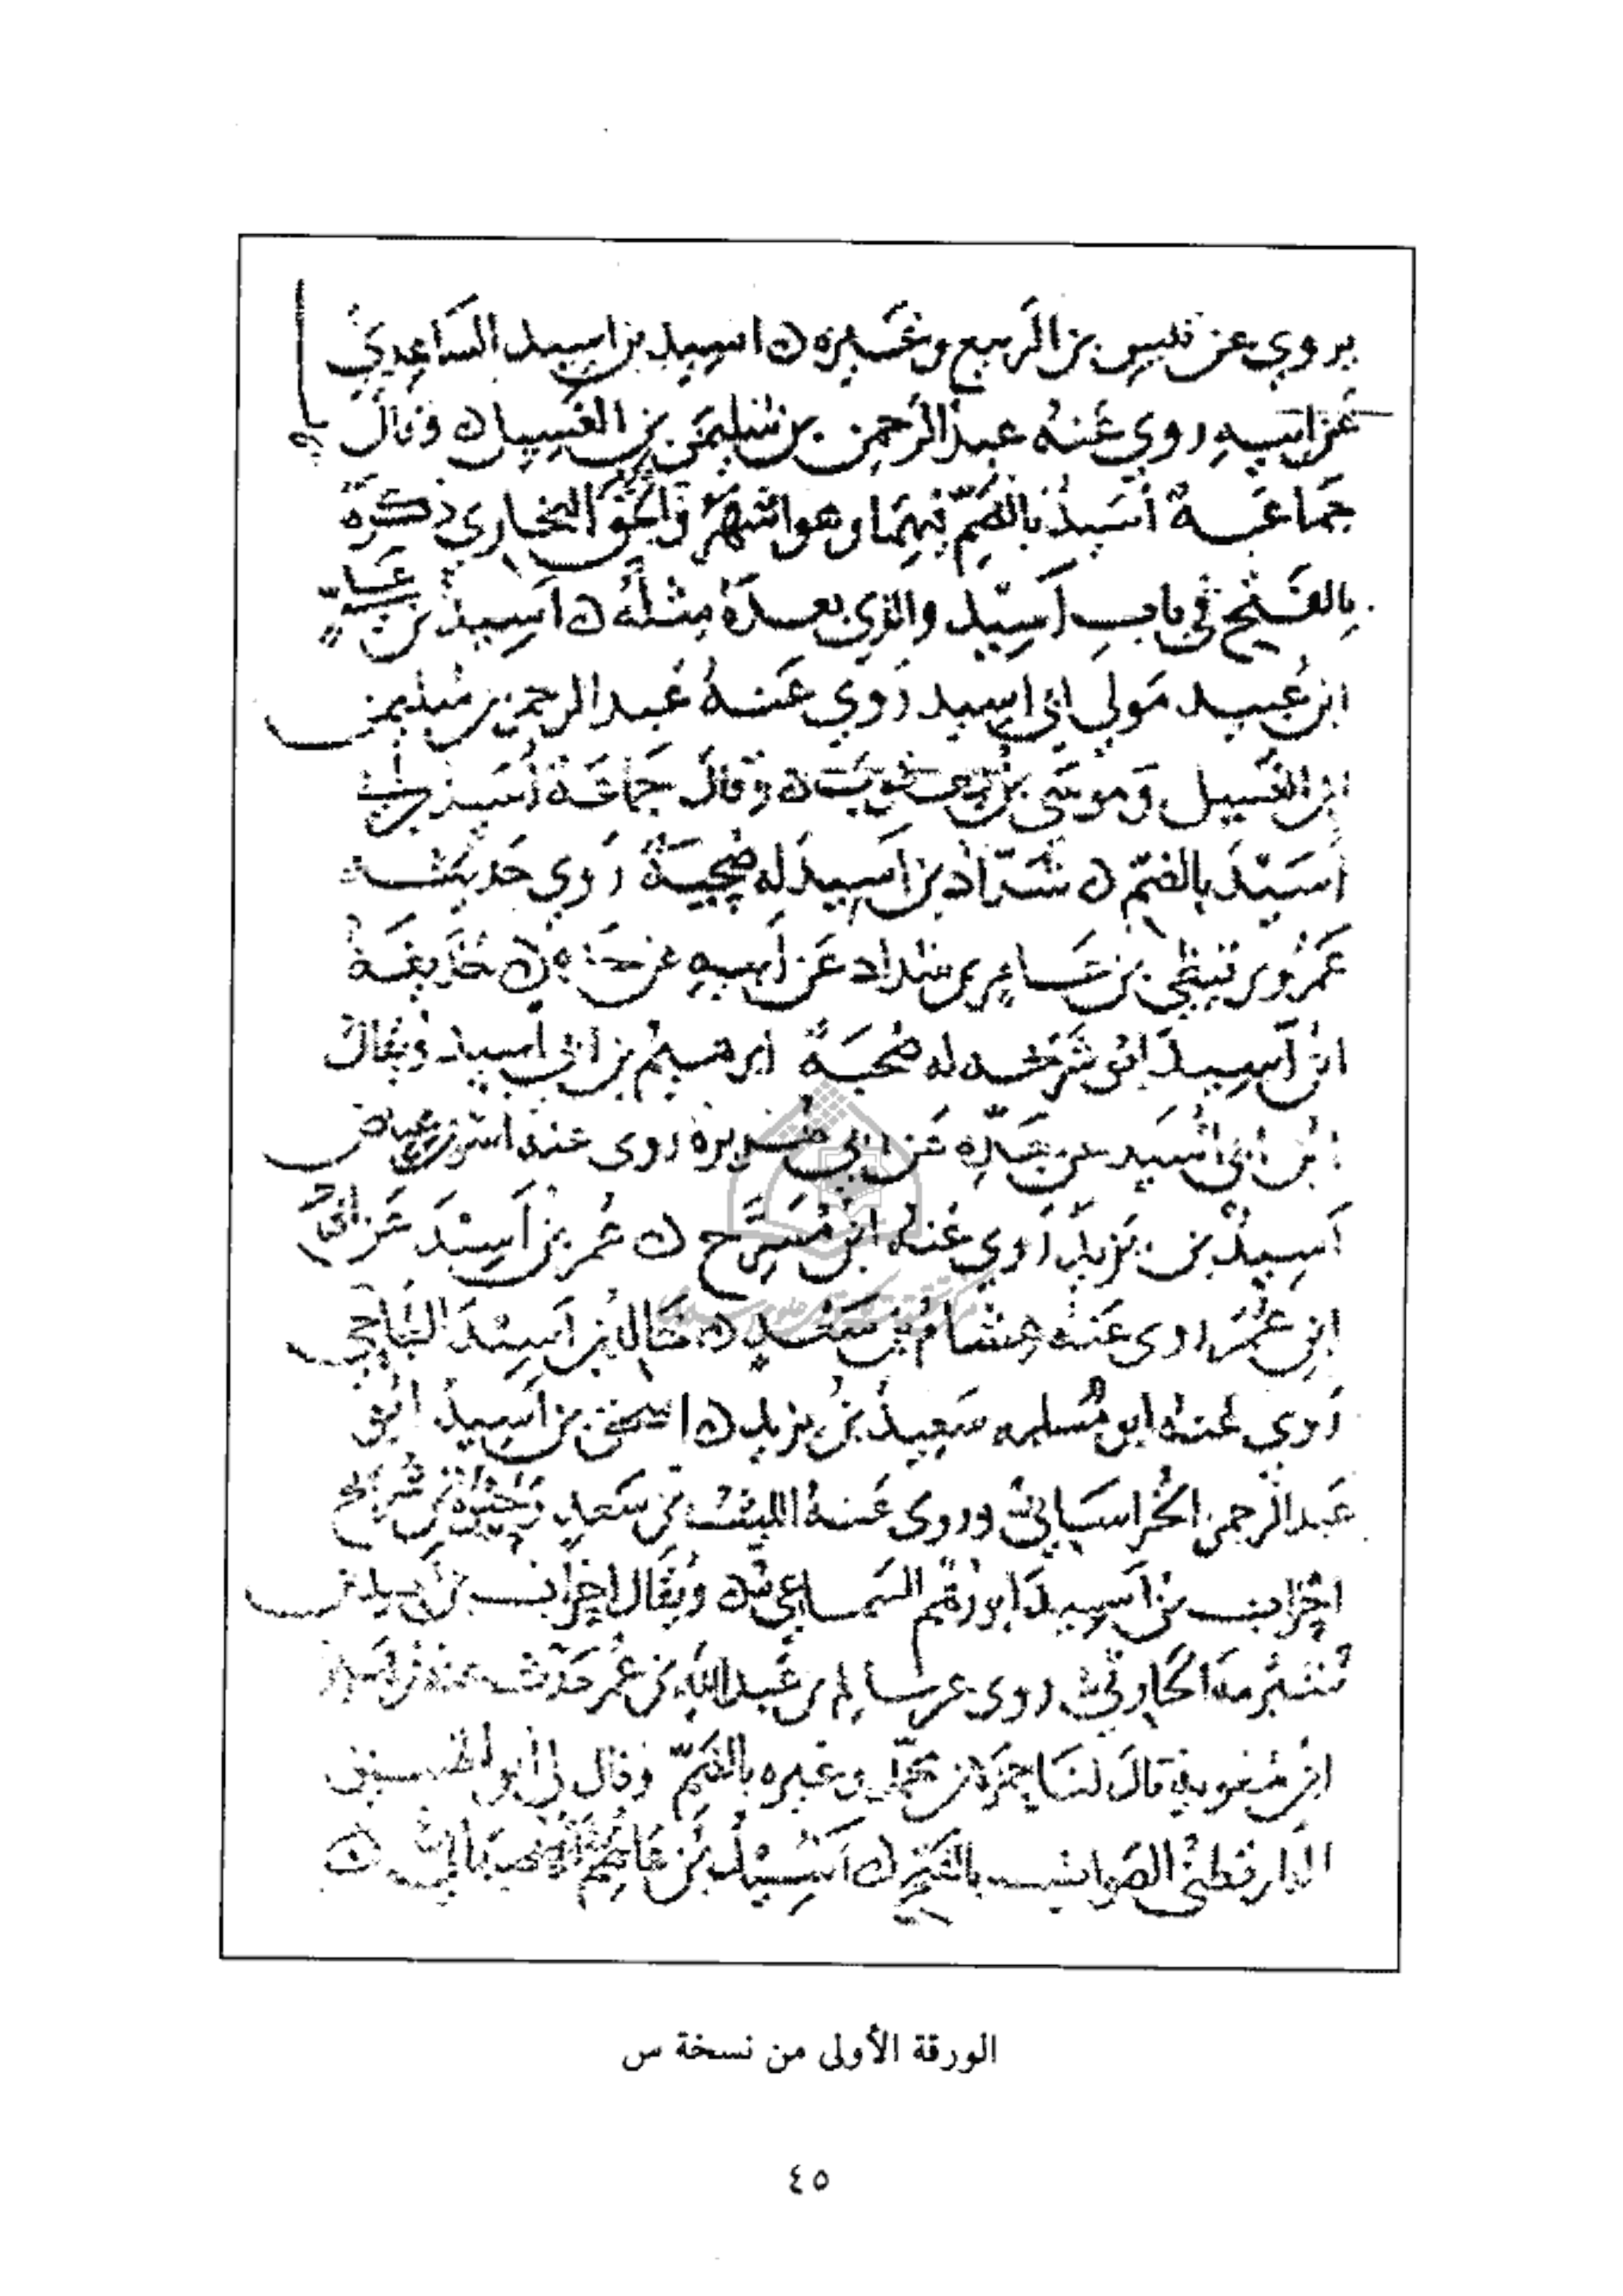 يروي عن قيس بن الربيع وغيره ن اسيد بن اسيد الساعدي
عن ابيه روي عنه عبد الرحمن بن سليمن بن الغسيل ن وقال
جماعة أسيد بالضم فيهما وهو اشهر البخاري ذكره
بالفتح في باب أسيد والذي بعده مثله ن أسيد بن علي
ابن عبيد مولي ابي اسيد روي عنه عبد الرحمن بن سليمن
ابن الغسيل وموسى بن يعقوب ن وقال جماعة أسيد بن ابي
أسيد بالضم ن شداد بن أسيد له صحبة روي حديثه
عمرو بن قيظي بن عامر بن شداد عن أبيه عن جده ن حذيفة
ابن أسيد ابو سريحه له صحبة ابرهيم بن ابي أسيد ويقال
ابن ابي أسيد عن جده عن ابي هريرة روى عنه انس بن عياض
أسيد بن يزيد روي عنه ابن مسرح ن عمر بن أسيد عن
ابن عمر روى عنه هشام بن سعد ن خالد بن أسيد الناجي
روي عنه ابو مسلمه سعيد بن يزيد ن اسحق بن أسيد ابو
عبد الرحمن الخراساني وروى عنه الليث بن سعد وحيوة بن شريح
احزاب بن أسيد ابو رهم السماعي ن ويقال احزاب بن أسيد ن
روى عن سالم بن عبد الله بن عمر حدث عنه
ابن معوية قال لنا حمزة بن محمد وغيره بالضم وقال لي ابو الحسن
الدارقطني الصواب بالفتح ن أسيد بن عاصم الاصبهاني ن
الورقة الأولى من نسخة س
٤٥